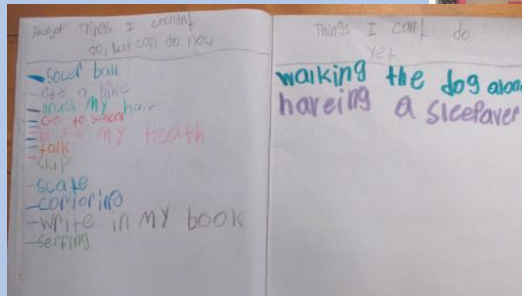 Things I couldn't
do, but can do now
- Socer ball
- ride a bike
- brush my hair
- Go to school
- my teath
- talk
- skip
- scate
- coploring
- write in my book
- serfing
Things I can't do
Yet
walking the dog alone
haveing a sleepaver